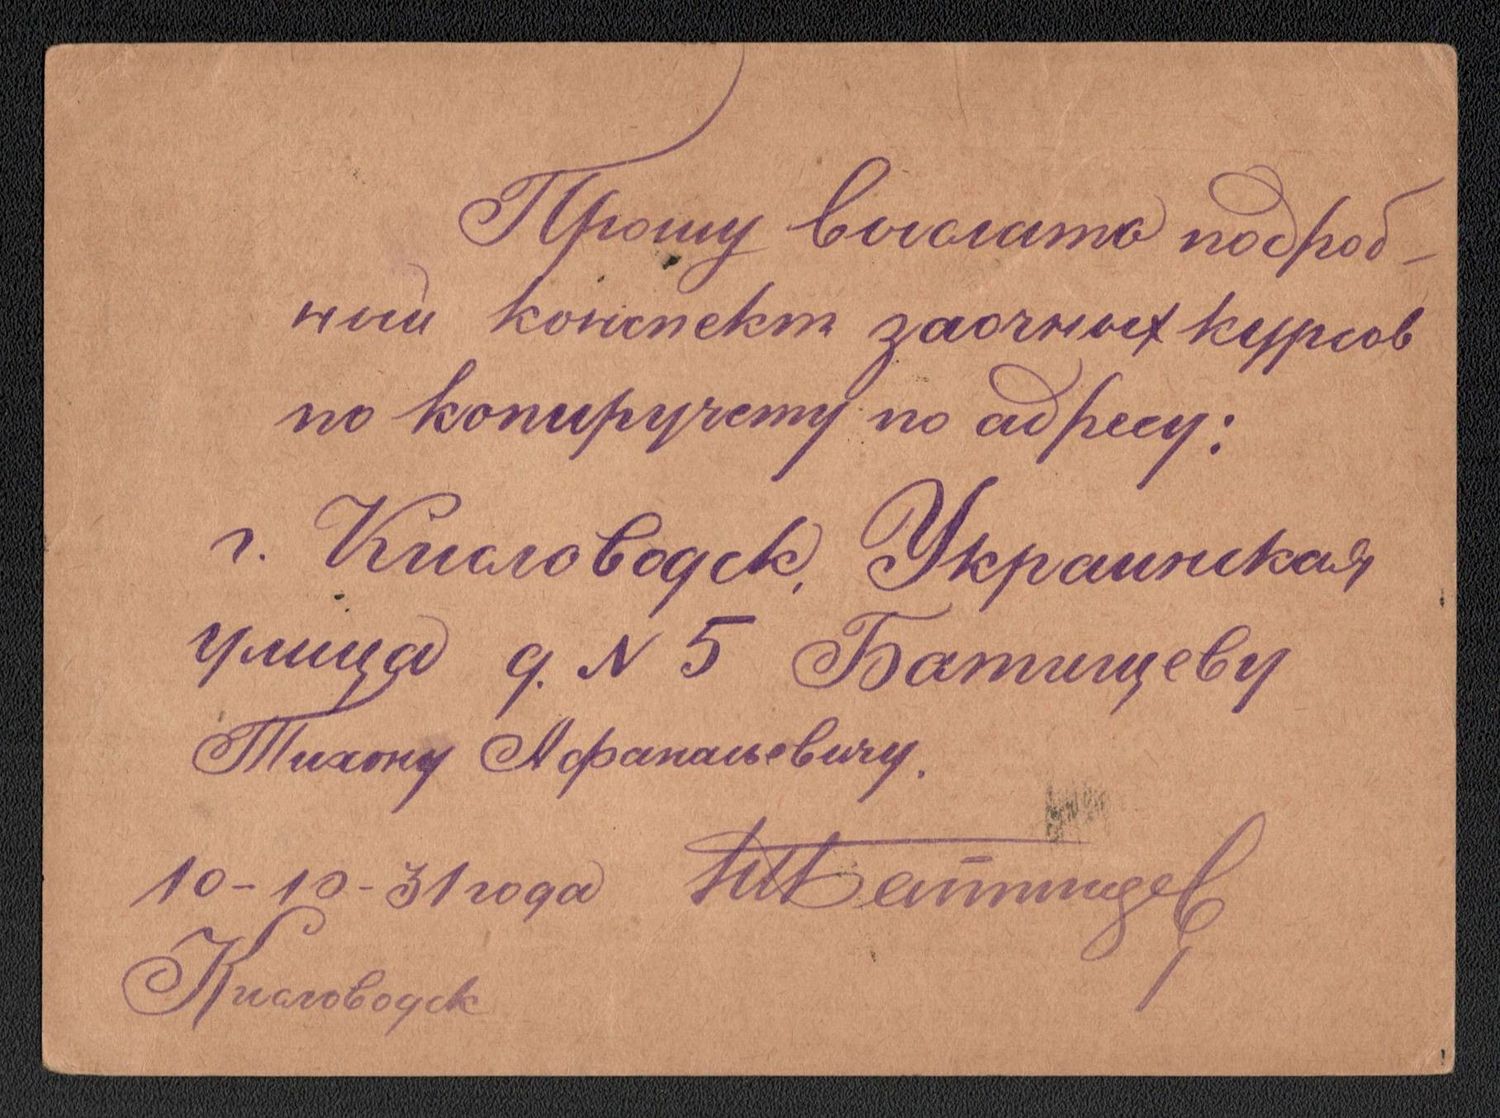 Прошу выслать подроб-
ный конспект заочных курсов
по копиручету по адресу:
г. Кисловодск, Украинская
улица д. № 5 Батищеву
Тихону Афанасьевичу.
10-10-31 года ТБатищев
Кисловодск